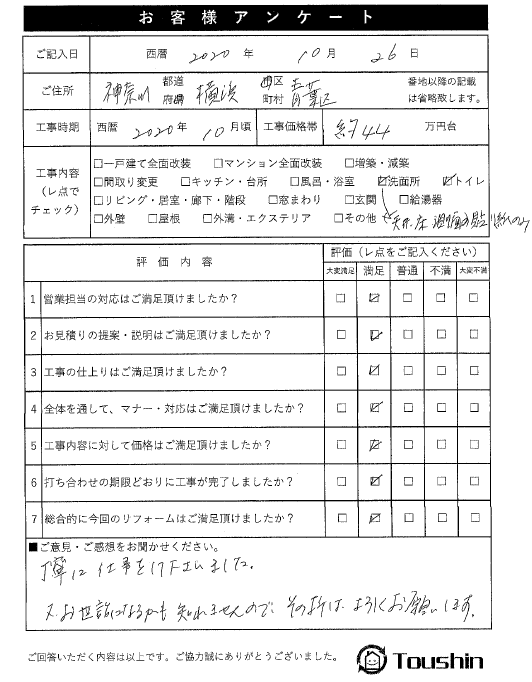 お客様アンケート
ご記入日 西暦 2020 年 10 月 26 日
ご住所 神奈川 都道府県 横浜 市区町村 青葉区 番地以降の記載は省略致します。
工事時期 西暦 2020 年 10 月頃 工事価格帯 約44 万円台
工事内容(レ点でチェック)
□一戸建て全面改装 □マンション全面改装 □増築・減築
□間取り変更 □キッチン・台所 □風呂・浴室 ☑洗面所 ☑トイレ
□リビング・居室・廊下・階段 □窓まわり □玄関 □給湯器
□外壁 □屋根 □外溝・エクステリア □その他 天井、床
評価内容 評価(レ点をご記入ください)
大変満足 満足 普通 不満 大変不満
1 営業担当の対応はご満足頂けましたか? □ ☑ □ □ □
2 お見積りの提案・説明はご満足頂けましたか? □ ☑ □ □ □
3 工事の仕上りはご満足頂けましたか? □ ☑ □ □ □
4 全体を通して、マナー・対応はご満足頂けましたか? □ ☑ □ □ □
5 工事内容に対して価格はご満足頂けましたか? □ ☑ □ □ □
6 打ち合わせの期限どおりに工事が完了しましたか? □ ☑ □ □ □
7 総合的に今回のリフォームはご満足頂けましたか? □ ☑ □ □ □
■ご意見・ご感想をお聞かせください。
丁寧に仕事を行下さいました。
又お世話になるかも知れませんので、その折はよろしくお願いします。
ご回答いただく内容は以上です。ご協力誠にありがとうございました。 Toushin